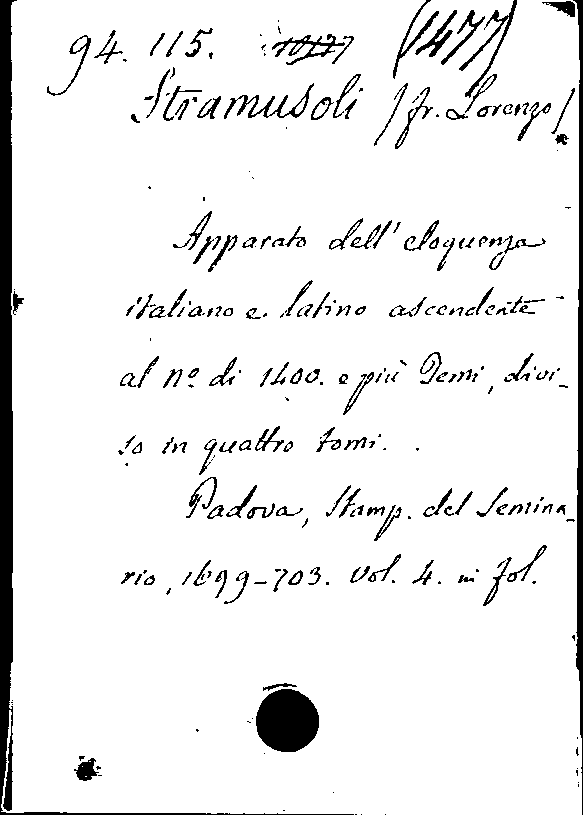 94. 115. 10127 (1477)
Stramusoli /fr. Lorenzo/
Apparato dell' eloquenza
italiano e latino ascendente
al nº di 1400. e più Temi, divi-
so in quattro tomi.
Padova, Stamp. del Semina-
rio, 1699-703. Vol. 4. in fol.